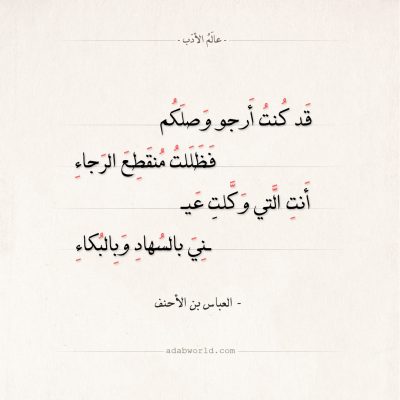 - عالَمُ الأدَب -
قَد كُنتُ أَرجو وَصلَكُم
فَظَلَلتُ مُنقَطِعَ الرَجاءِ
أَنتِ الَّتي وَكَّلتِ عَيـ
ـنِيَ بالسُهادِ وَبِالبُكاءِ
- العباس بن الأحنف
adabworld.com